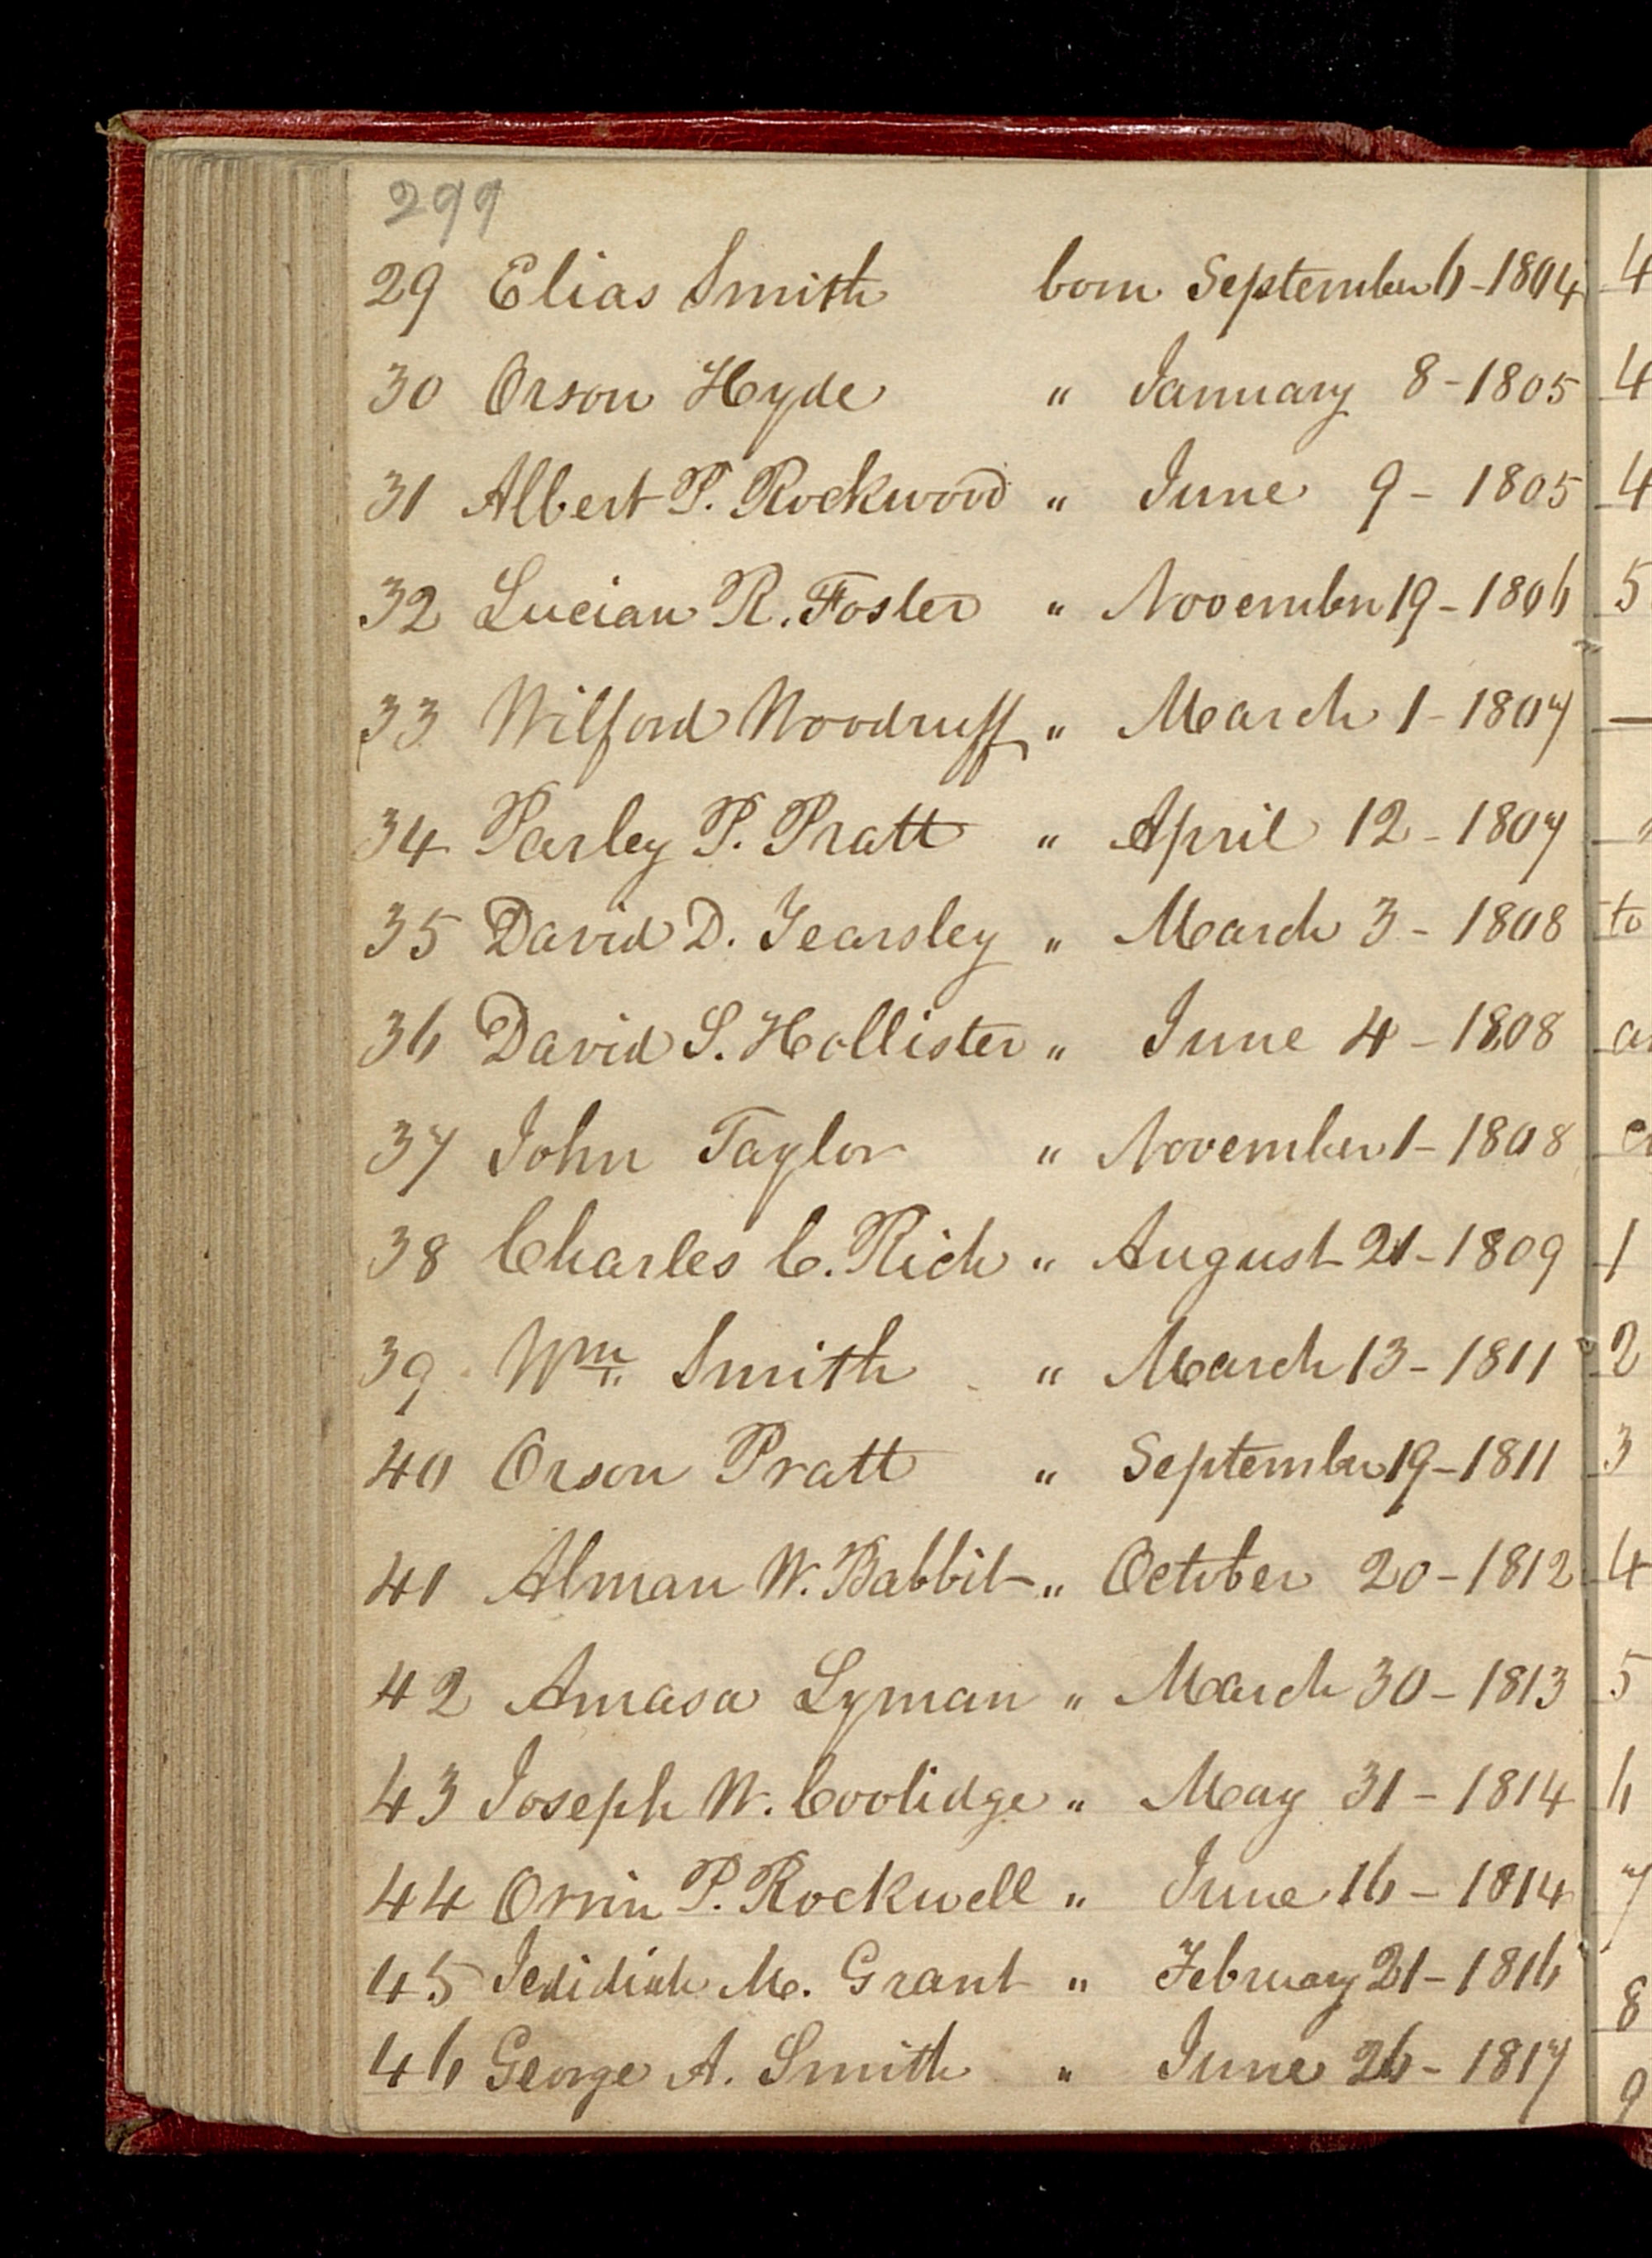 299
29 Elias Smith born September 6-1804
30 Orson Hyde " January 8-1805
31 Albert P. Rockwood " June 9-1805
32 Lucian R. Foster " November 19-1806
33 Wilford Woodruff " March 1-1807
34 Parley P. Pratt " April 12-1807
35 David D. Yearsley " March 3-1808
36 David S. Hollister " June 4-1808
37 John Taylor " November 1-1808
38 Charles C. Rich " August 21-1809
39 Wm. Smith " March 13-1811
40 Orson Pratt " September 19-1811
41 Alman W. Babbit " October 20-1812
42 Amasa Lyman " March 30-1813
43 Joseph W. Coolidge " May 31-1814
44 Orrin P. Rockwell " June 16-1814
45 Jedidiah M. Grant " February 21-1816
46 George A. Smith " June 26-1817
4
4
4
5
to
1
2
3
4
5
6
7
8
9